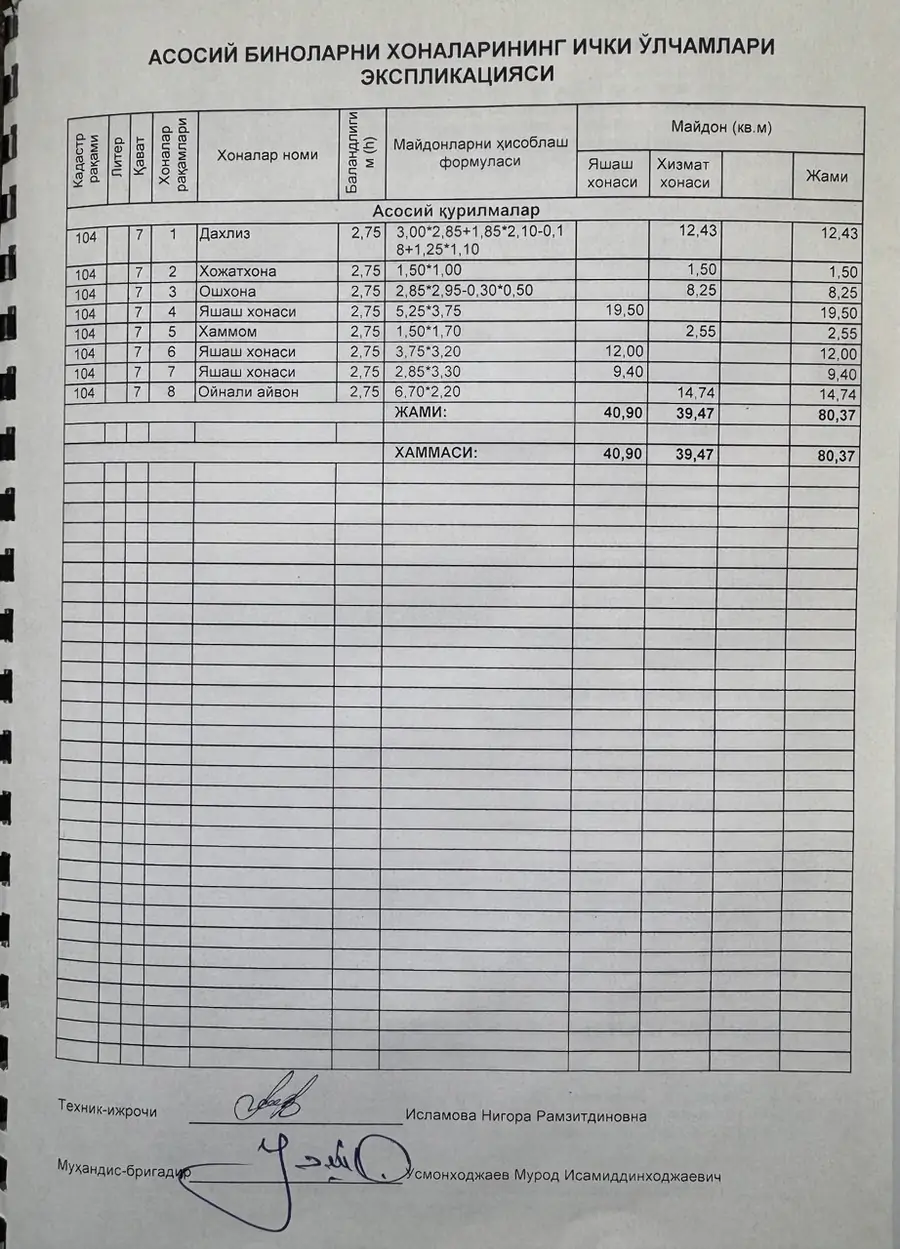 АСОСИЙ БИНОЛАРНИ ХОНАЛАРИНИНГ ИЧКИ ЎЛЧАМЛАРИ
ЭКСПЛИКАЦИЯСИ
Кадастр рақами Литер Қават Хоналар рақамлари Хоналар номи Баландлиги м (h) Майдонларни ҳисоблаш формуласи Майдон (кв.м)
Яшаш хонаси Хизмат хонаси Жами
Асосий қурилмалар
104 7 1 Дахлиз 2,75 3,00*2,85+1,85*2,10-0,1 12,43 12,43
8+1,25*1,10
104 7 2 Хожатхона 2,75 1,50*1,00 1,50 1,50
104 7 3 Ошхона 2,75 2,85*2,95-0,30*0,50 8,25 8,25
104 7 4 Яшаш хонаси 2,75 5,25*3,75 19,50 19,50
104 7 5 Хаммом 2,75 1,50*1,70 2,55 2,55
104 7 6 Яшаш хонаси 2,75 3,75*3,20 12,00 12,00
104 7 7 Яшаш хонаси 2,75 2,85*3,30 9,40 9,40
104 7 8 Ойнали айвон 2,75 6,70*2,20 14,74 14,74
ЖАМИ: 40,90 39,47 80,37
ХАММАСИ: 40,90 39,47 80,37
Техник-ижрочи Исламова Нигора Рамзитдиновна
Муҳандис-бригадир Усмонходжаев Мурод Исамиддинходжаевич